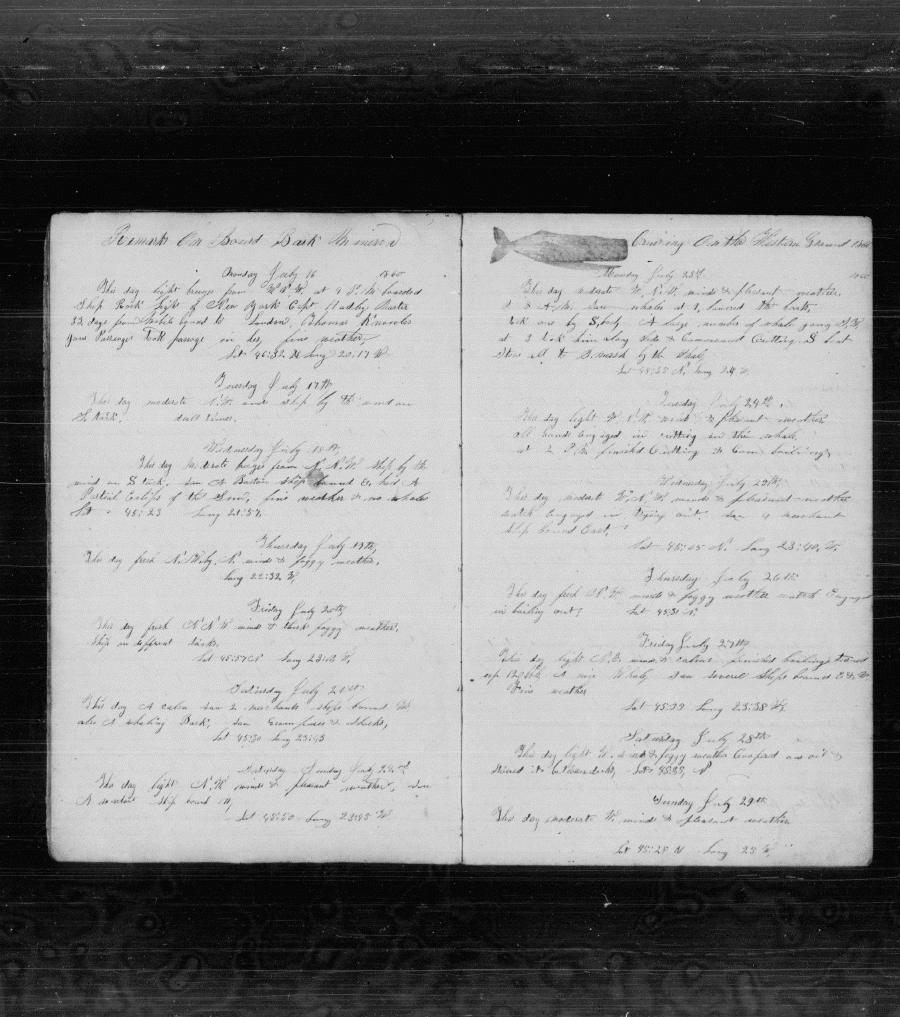 Remarks On Board Bark Minerva
Monday July 16 1860
This day light breezes from W.N.W. at 4 P.M boarded
Ship Rock Light of New York Capt. Hadley Master
33 days from to London, Thomas Knowles
Passenger Took passage in her, fine weather
Lat 46:32 N Long 20:17 W
Tuesday July 17th
This day moderate N.W. winds ship by the wind on
S. tack. dull times.
Wednesday July 18th
This day Moderate breezes from N.N.W ship by the
wind on S tack, Saw A Barten ship bound E, had A
Partial Eclips of the Sun, fine weather & no whales
Lat 45:23 Long 21:57
Thursday July 19th,
This day fresh N.W. by N. winds & foggy weather,
Long 22:32 W,
Friday July 20th,
This day fresh N.N.W winds & thick foggy weather.
Ship on different tacks.
Lat 45:57 N Long 23:12 W,
Saturday July 21st
This day A calm Saw 2 merchants ships bound W
also A whaling Bark, Saw Grampuses &
Lat 45:30 Long 23:43
Saturday Sunday July 22nd,
This day light N.W winds & pleasant weather, Saw
A merchant Ship bound W,
Lat 45:50 Long 23:45 W
Cruising On the Western Ground 1860
Monday July 23d, 1860
This day moderate W.N.W. winds & pleasant weather.
at 8 A.M. Saw whales at 9, lowered the boats,
took one by S.boat, A large number of whale going
at 3 took him along side & Commenced Cutting. S boat
Stove all to Smash by the Whale
Lat 45:35 N. Long 24 W
Tuesday July 24th,
This day light W.N.W. wind & pleasant weather
all hands Engaged in cutting in the whale,
at 2 P.M finished Cutting & Com. boiling,
Wednesday July 25th,
This day moderat W.N.W. winds & pleasant weather
watch Engaged in trying out. Saw 4 merchant
ship bound East,
Lat 45:05 N. Long 23:40, W,
Thursday July 26th
This day fresh N.W winds & foggy weather watch Engaged
in boiling out, Lat 45:31 N
Friday July 27th,
This day light N.E. winds & calms, finished boiling, Stowed
up 120 bbls, A nice Whale, Saw several Ships bound E. & W.
Fine weather
Lat 45:39 Long 23:38 W,
Saturday July 28th
This day light W. wind & foggy weather Coopered our oil &
Lat 45:33, N
Sunday July 29th
This day moderate W. winds & pleasant weather
Lat 45:28 N Long 25 W,